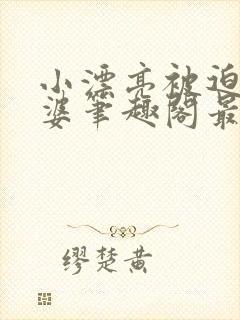 小漂亮被迫
婆笔趣阁最
缪楚黄